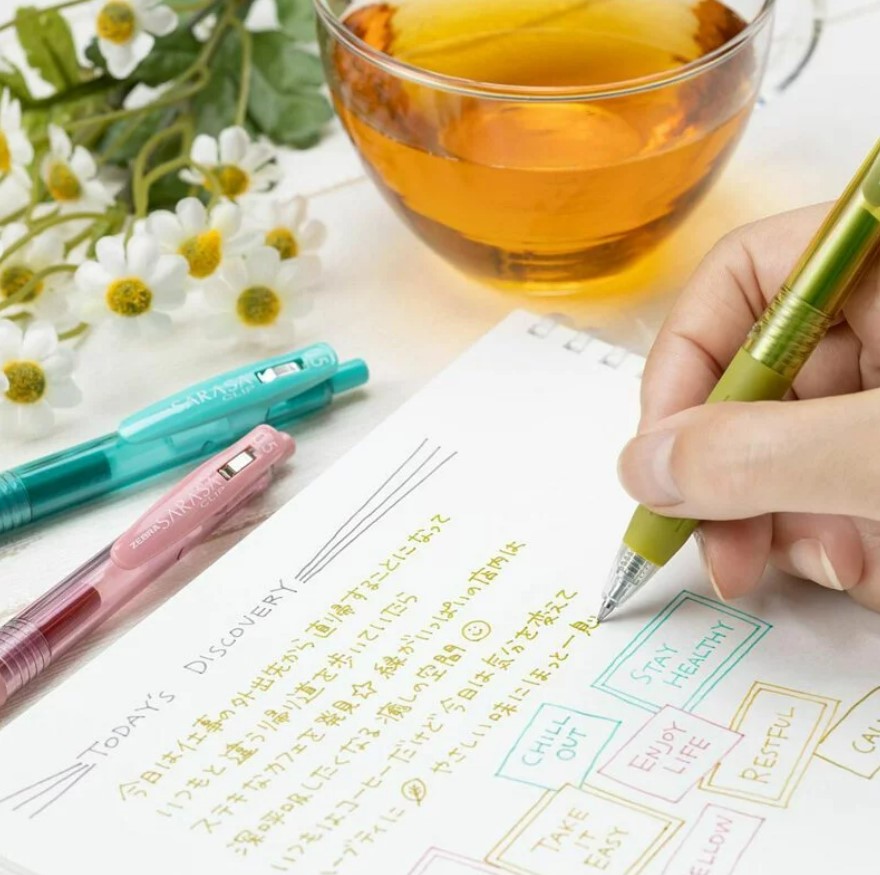 SARASA CLIP 0.5
ZEBRA SARASA CLIP 0.5
TODAY'S DISCOVERY
今日は仕事の外出先から直帰することになって
いつもと違う帰り道を歩いていたら
ステキなカフェを発見☆ 緑がいっぱいの店内は
深呼吸したくなる癒しの空間☺
いつもはコーヒーだけど今日は気分を変えて
ーブティに やさしい味にほっと一息
STAY
HEALTHY
CHILL
OUT
ENJOY
LIFE
RESTFUL
TAKE
IT
EASY